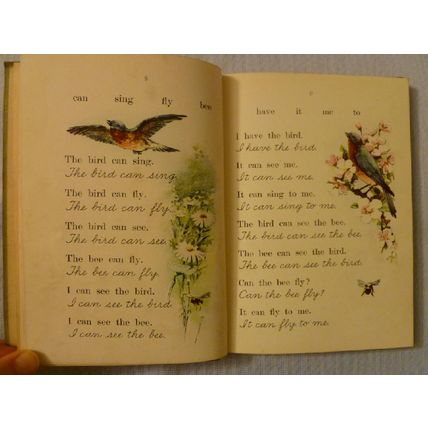 8
can sing fly bees
The bird can sing.
The bird can sing.
The bird can fly.
The bird can fly.
The bird can see.
The bird can see.
The bee can fly.
The bee can fly.
I can see the bird.
I can see the bird.
I can see the bee.
I can see the bee.
have it me to
I have the bird.
I have the bird.
It can see me.
It can see me.
It can sing to me.
It can sing to me.
The bird can see the bee.
The bird can see the bee.
The bee can see the bird.
The bee can see the bird.
Can the bee fly?
Can the bee fly?
It can fly to me.
It can fly to me.